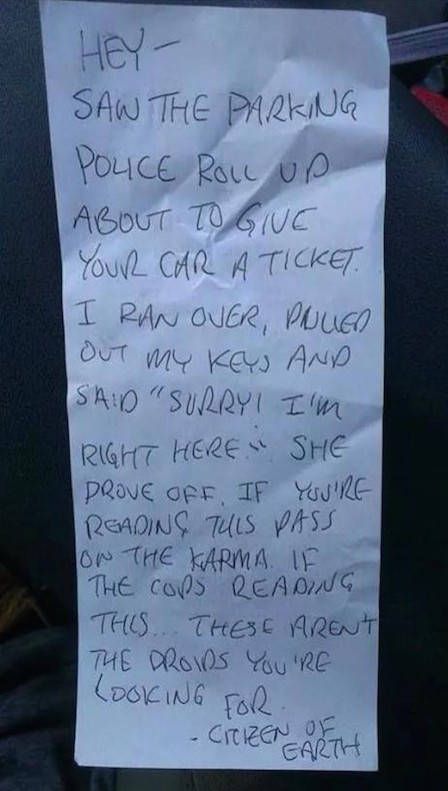 HEY -
SAW THE PARKING
POLICE ROLL UP
ABOUT TO GIVE
YOUR CAR A TICKET.
I RAN OVER, PULLED
OUT MY KEYS AND
SAID "SORRY! I'M
RIGHT HERE." SHE
DROVE OFF. IF YOU'RE
READING THIS PASS
ON THE KARMA. IF
THE COPS READING
THIS... THESE AREN'T
THE DROIDS YOU'RE
LOOKING FOR.
- CITIZEN OF
EARTH